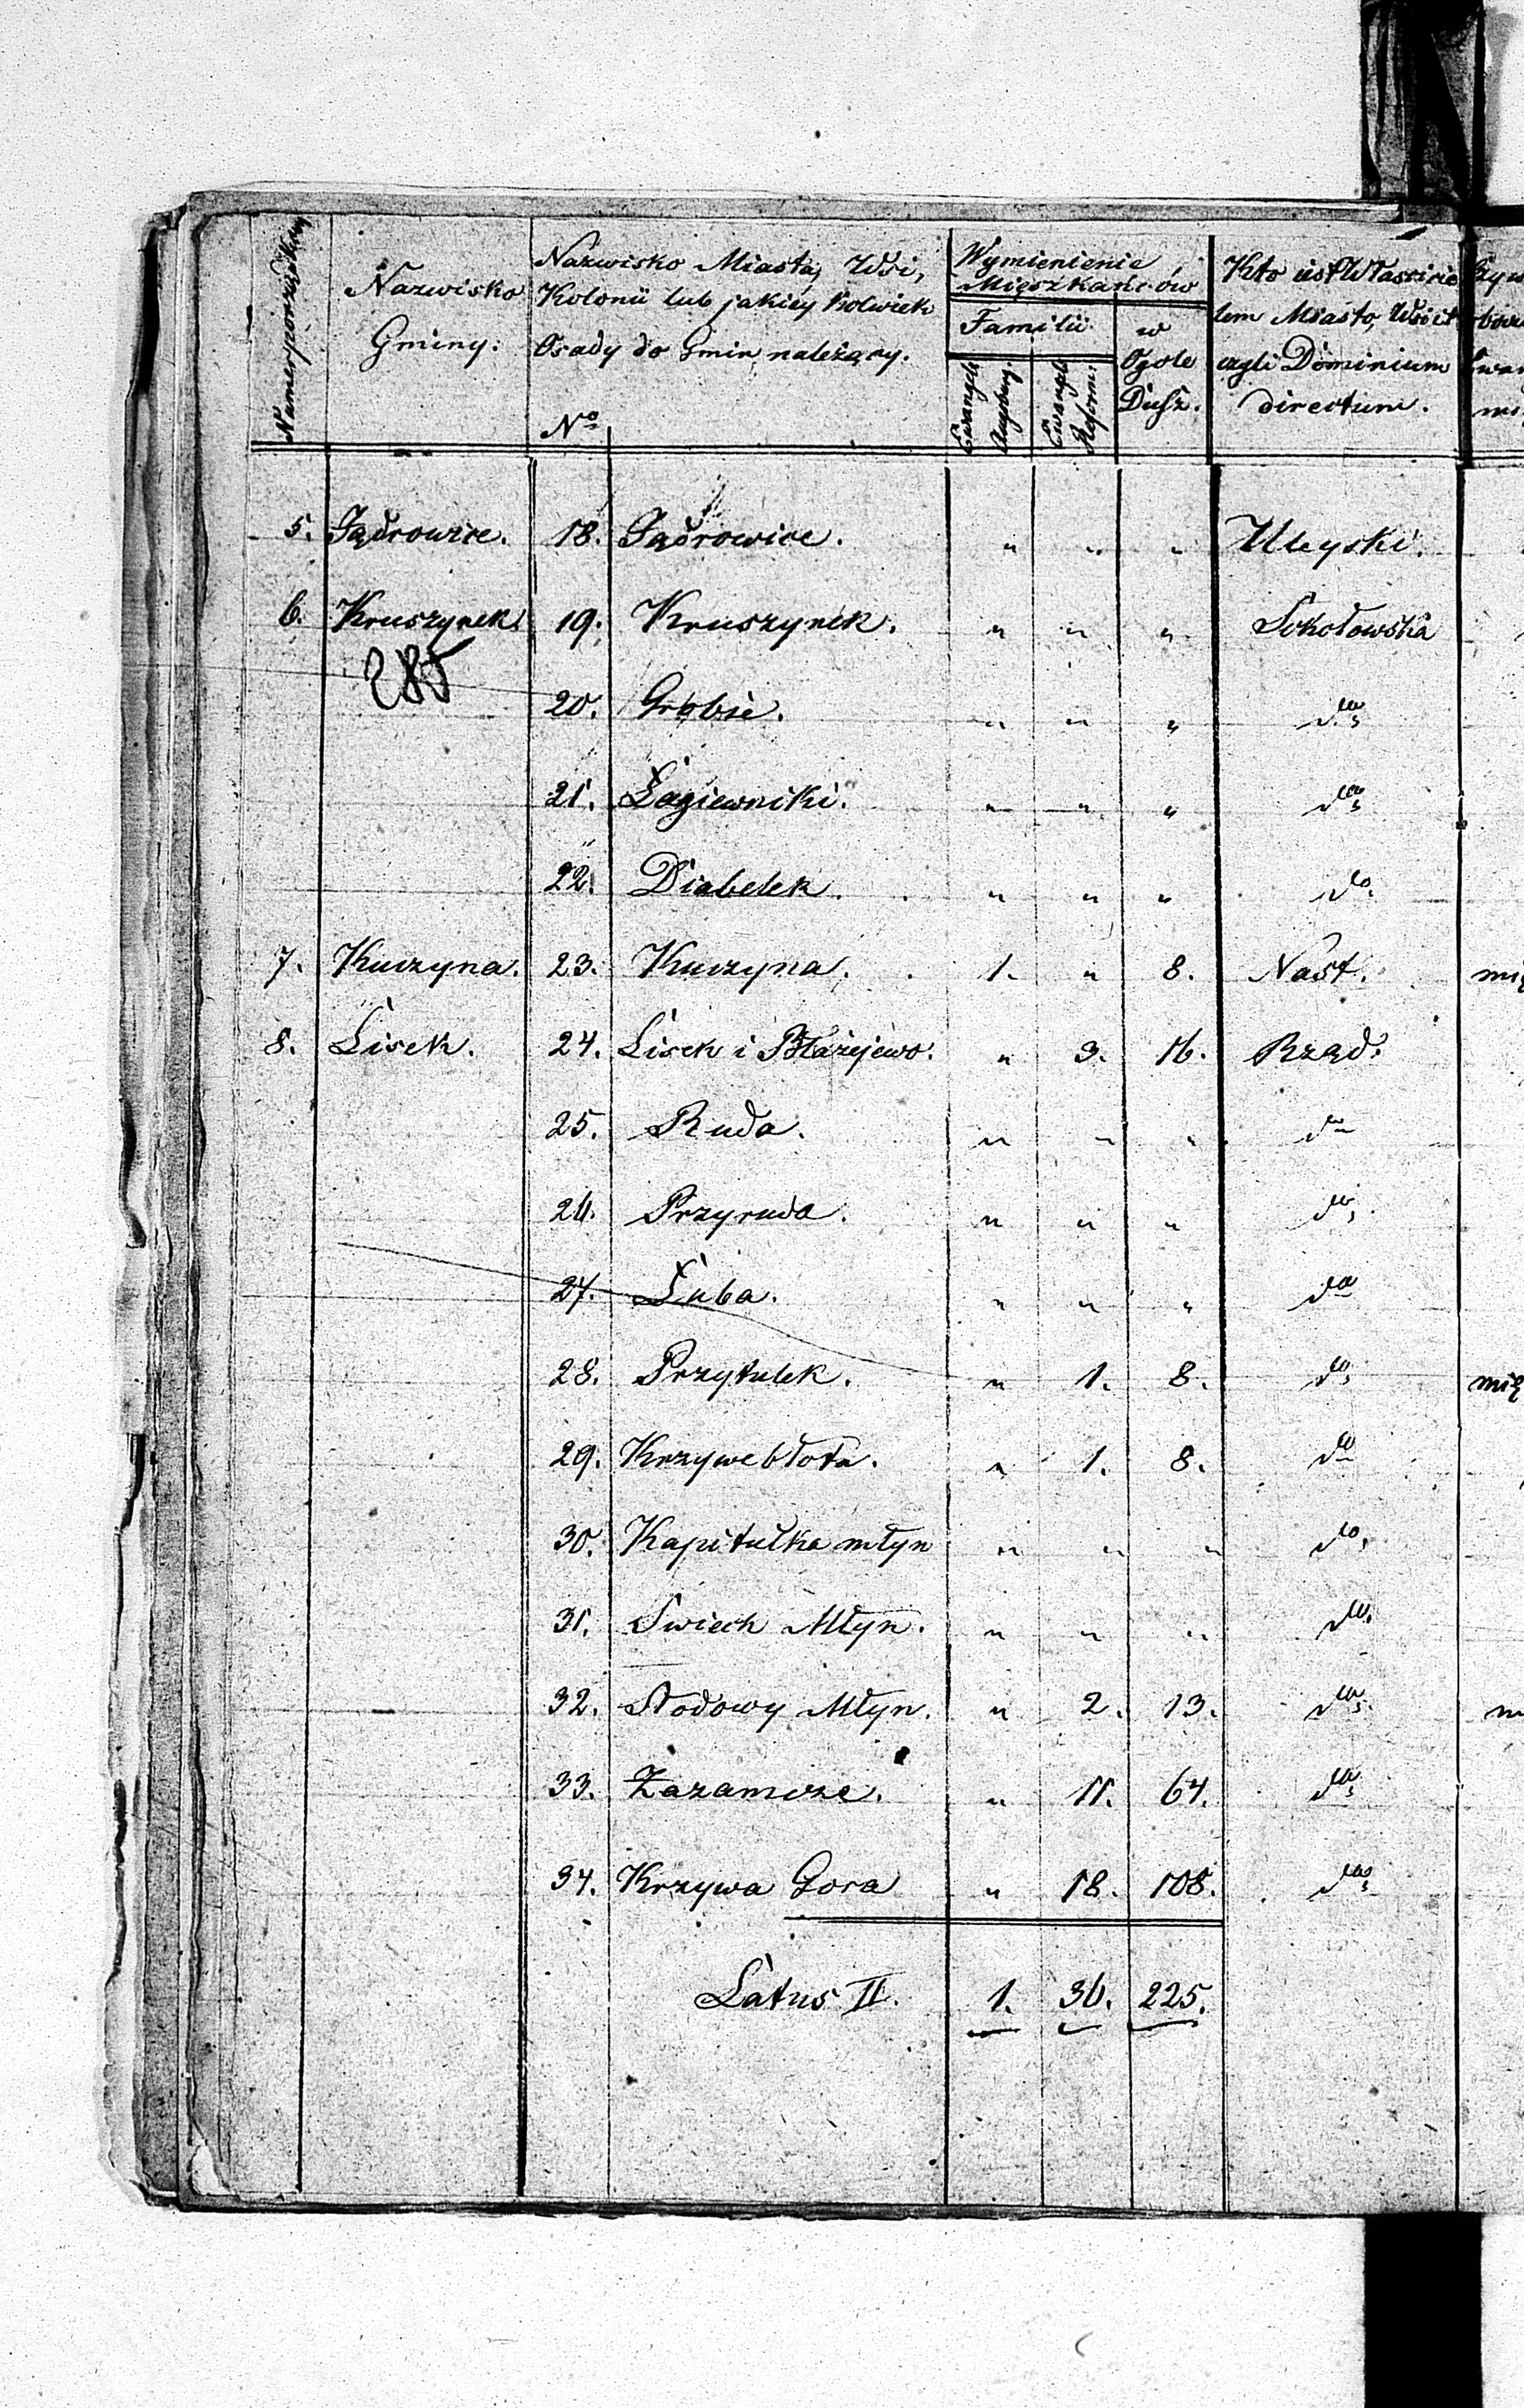 Numer porządkowy
Nazwisko
Gminy.
Nazwisko Miasta, Wsi,
Kolonii lub jakiey kolwiek
Osady do Gmin należący.
No
Wymienienie
Mieszkańców
Familii
Ewangel. Augsburg.
Ewangel. Reform.
w
Ogole
Dusz.
Kto iest Właścicie
lem Miasto, Wsi it
czyli Dominium
directum.
5. Jądrowice. 18. Jądrowice. " " "
6. Kruszynek. 19. Kruszynek. " " " Sokołowska
285
20. Grobie. " " " do
21. Łagiewniki. " " " do
22. Diabelek. " " " do
7. Kuczyna. 23. Kuczyna. 1. " 8. Nast.
8. Lisek. 24. Lisek i Błażejewo. " 3. 16. Rząd.
25. Ruda. " " " do
26. Przyruda. " " " do
27. Łuba. " " " do
28. Przytulek. " 1. 8. do
29. Krzywebłota. " 1. 8. do
30. Kapitułka młyn " " " do
31. Swiech Młyn. " " " do
32. Stodowy Młyn. " 2. 13. do
33. Zazamcze. " 11. 64. do
34. Krzywa Gora " 18. 108. do
Latus II. 1. 36. 225.